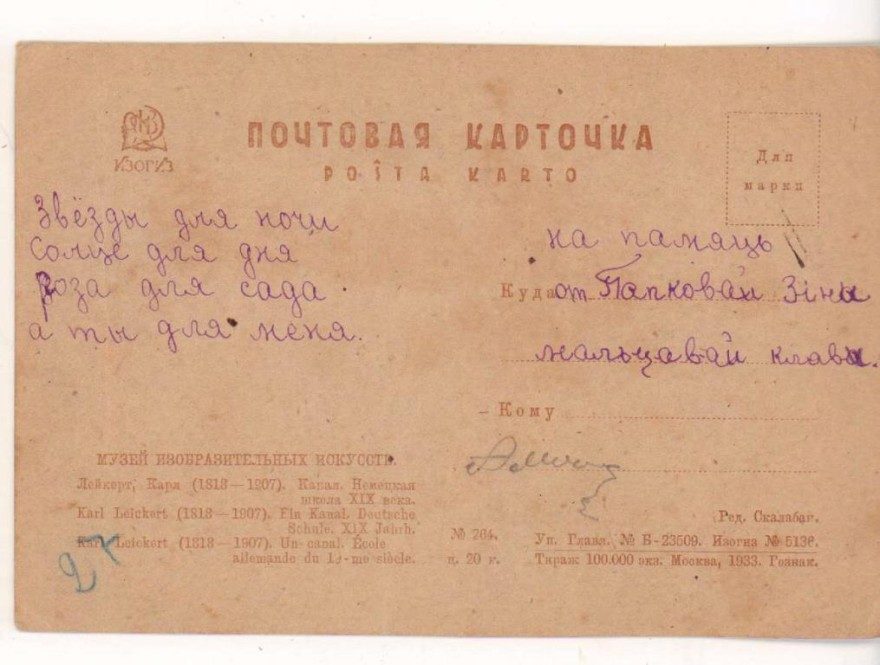 ИЗОГИЗ
ПОЧТОВАЯ КАРТОЧКА
POŜTA KARTO
Для
марки
Звёзды для ночи
Солце для дня
Роза для сада
а ты для меня.
на памяць
Куда от Папковай Зіны
мальцавай клавы.
Кому
МУЗЕЙ ИЗОБРАЗИТЕЛЬНЫХ ИСКУССТВ.
Лейкерт, Карл (1818—1907). Канал. Немецкая
школа XIX века.
Karl Leickert (1818—1907). Ein Kanal. Deutsche
Schule. XIX Jahrh.
Karl Leickert (1818—1907). Un canal. École
allemande du 19-me siècle.
27
№ 264.
ц. 20 к.
Ред. Скалабан.
Уп. Глава. № Б-23509. Изогиз № 5136.
Тираж 100.000 экз. Москва, 1933. Гознак.